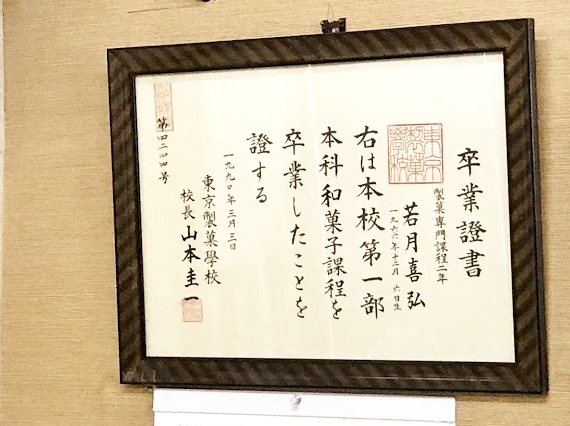 卒業證書
製菓専門課程二年
若月喜弘
一九六六年十二月六日生
右は本校第一部
本科和菓子課程を
卒業したことを
證する
一九九〇年三月三日
東京製菓學校
校長 山本圭一
第四二四四号
東京
製菓
學校